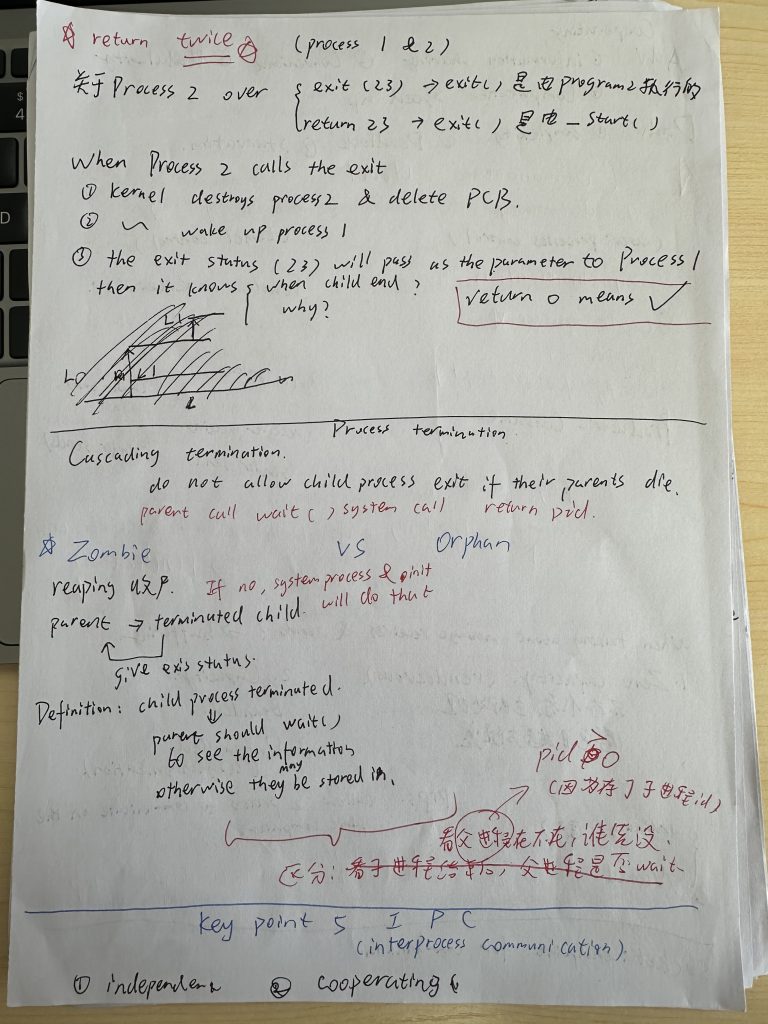 ☆ return twice ☆ (process 1 & 2)
关于Process 2 over { exit (23) → exit() 是由program2执行的
return 23 → exit() 是由 _start()
When Process 2 calls the exit
① kernel destroys process2 & delete PCB.
② 〜 wake up process 1
③ the exit status (23) will pass as the parameter to Process 1
then it knows { when child end?
why?
return 0 means ✓
Process termination
Cascading termination.
do not allow child process exit if their parents die.
parent call wait() system call return pid.
☆ Zombie VS Orphan
reaping 收尸. If no, system process & init
will do that
parent → terminated child.
give exis status.
Definition: child process terminated.
⇓
parent should wait()
to see the information
otherwise they may be stored in.
pid > 0
(因为存了子进程id)
看父进程在不在, 谁先没.
区分: 看子进程结束后, 父进程是否wait
Key point 5 I P C
(interprocess communication).
① independent ② cooperating